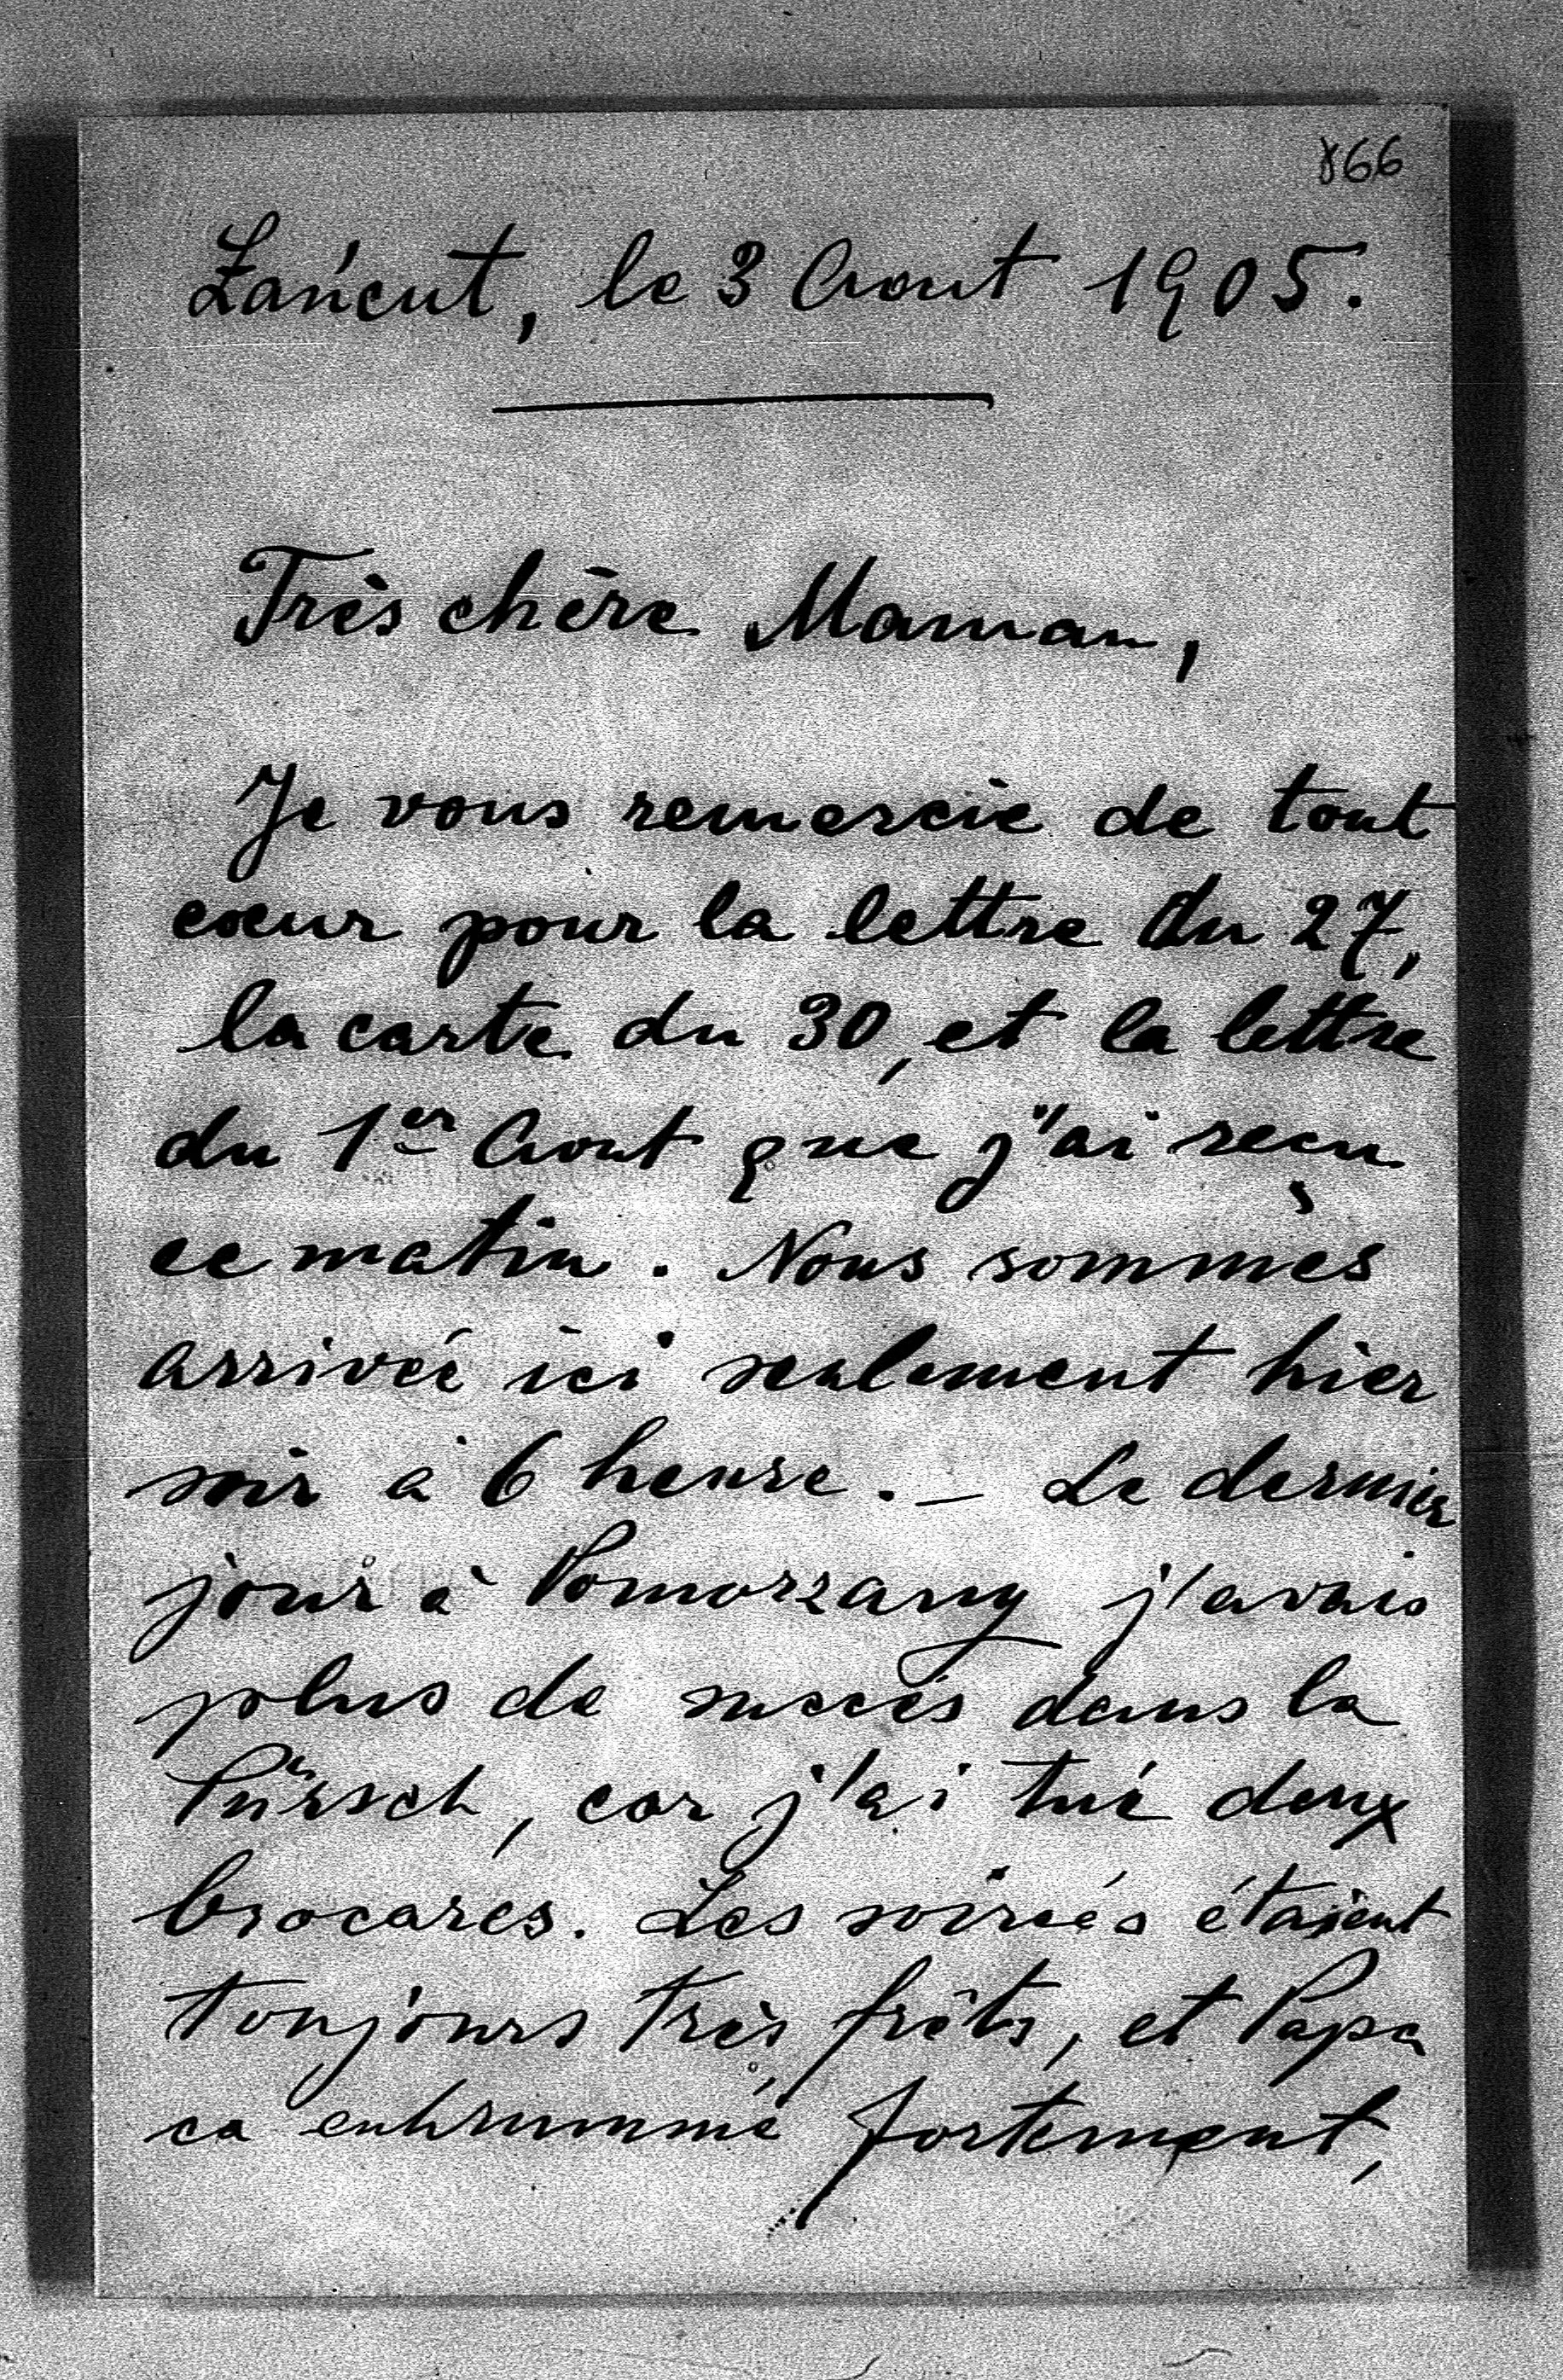 866
Łańcut, le 3 Aout 1905.
Très chère Maman,
Je vous remercie de tout
cœur pour la lettre du 27,
la carte du 30, et la lettre
du 1er Aout que j'ai reçu
ce matin. Nous sommes
arriveé ici seulement hier
soir à 6 heure. — Le dernier
jour à Pomorzany j'avais
plus de succès dans la
Pürsch, car j'ai tué deux
brocares. Les soireés étaient
toujours très frêts, et Papa
ca enhrummé fortement,